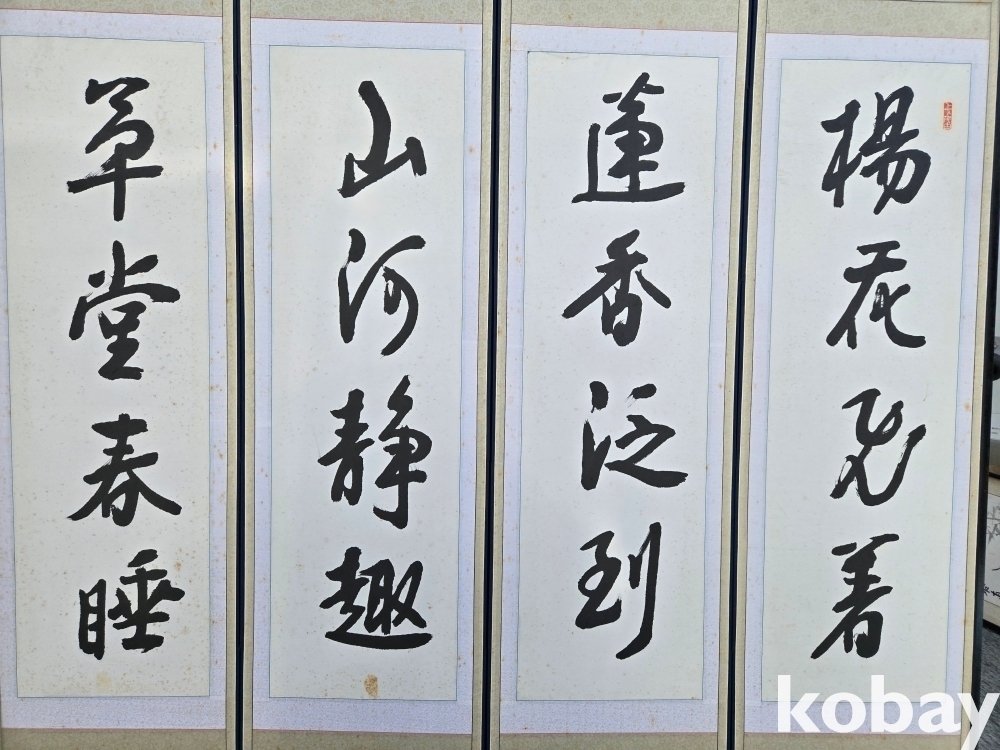 楊花飛著
蓮香泛到
山河静趣
草堂春睡
kobay